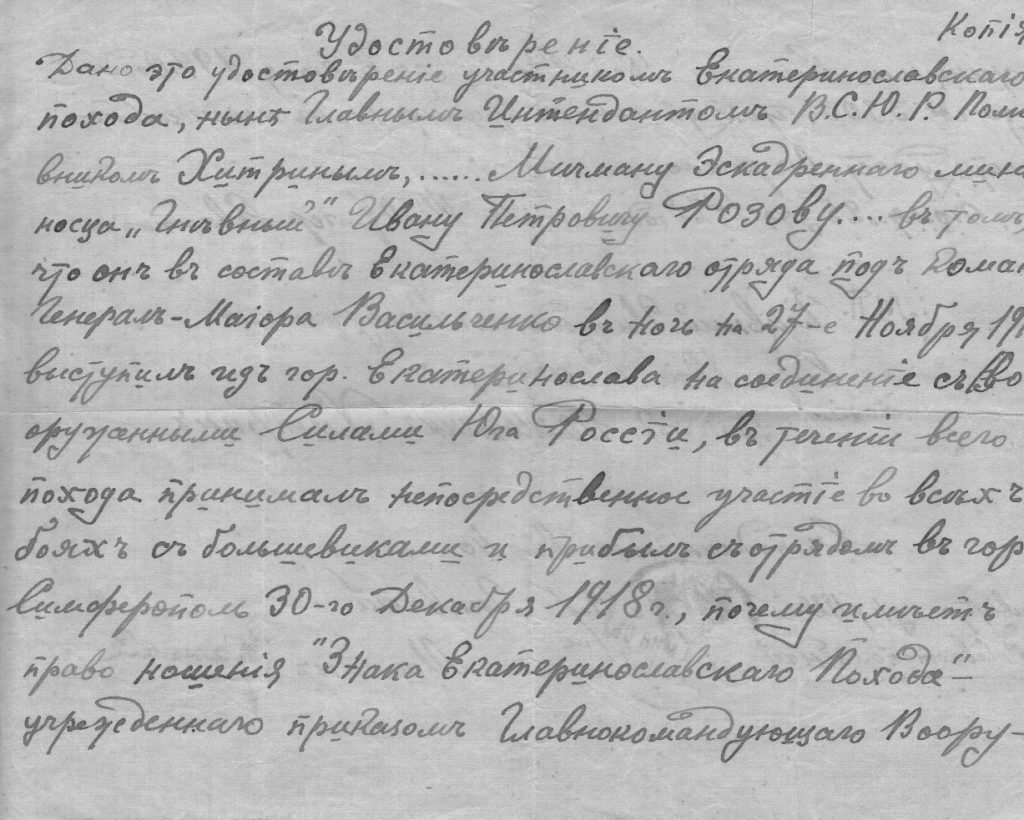 Копія
Удостовѣреніе.
Дано это удостовѣреніе участникомъ Екатеринославскаго
похода, нынѣ Главнымъ Интендантомъ В.С.Ю.Р. Полко
вникомъ Хитринымъ,...... Мичману Эскадреннаго мино
носца „Гнѣвный" Ивану Петровичу Розову.... въ томъ,
что онъ въ составѣ Екатеринославскаго отряда подъ коман
Генералъ-Маіора Васильченко въ ночь на 27-е Ноября 191
выступилъ изъ гор. Екатеринослава на соединеніе съ Во
оруженными Силами Юга Россіи, въ теченіи всего
похода принималъ непосредственное участіе во всѣхъ
бояхъ съ большевиками и прибылъ съ отрядомъ въ гор
Симферополь 30-го Декабря 1918 г., почему имѣетъ
право ношенія "Знака Екатеринославскаго Похода"—
учрежденнаго приказомъ Главнокомандующаго Воору-